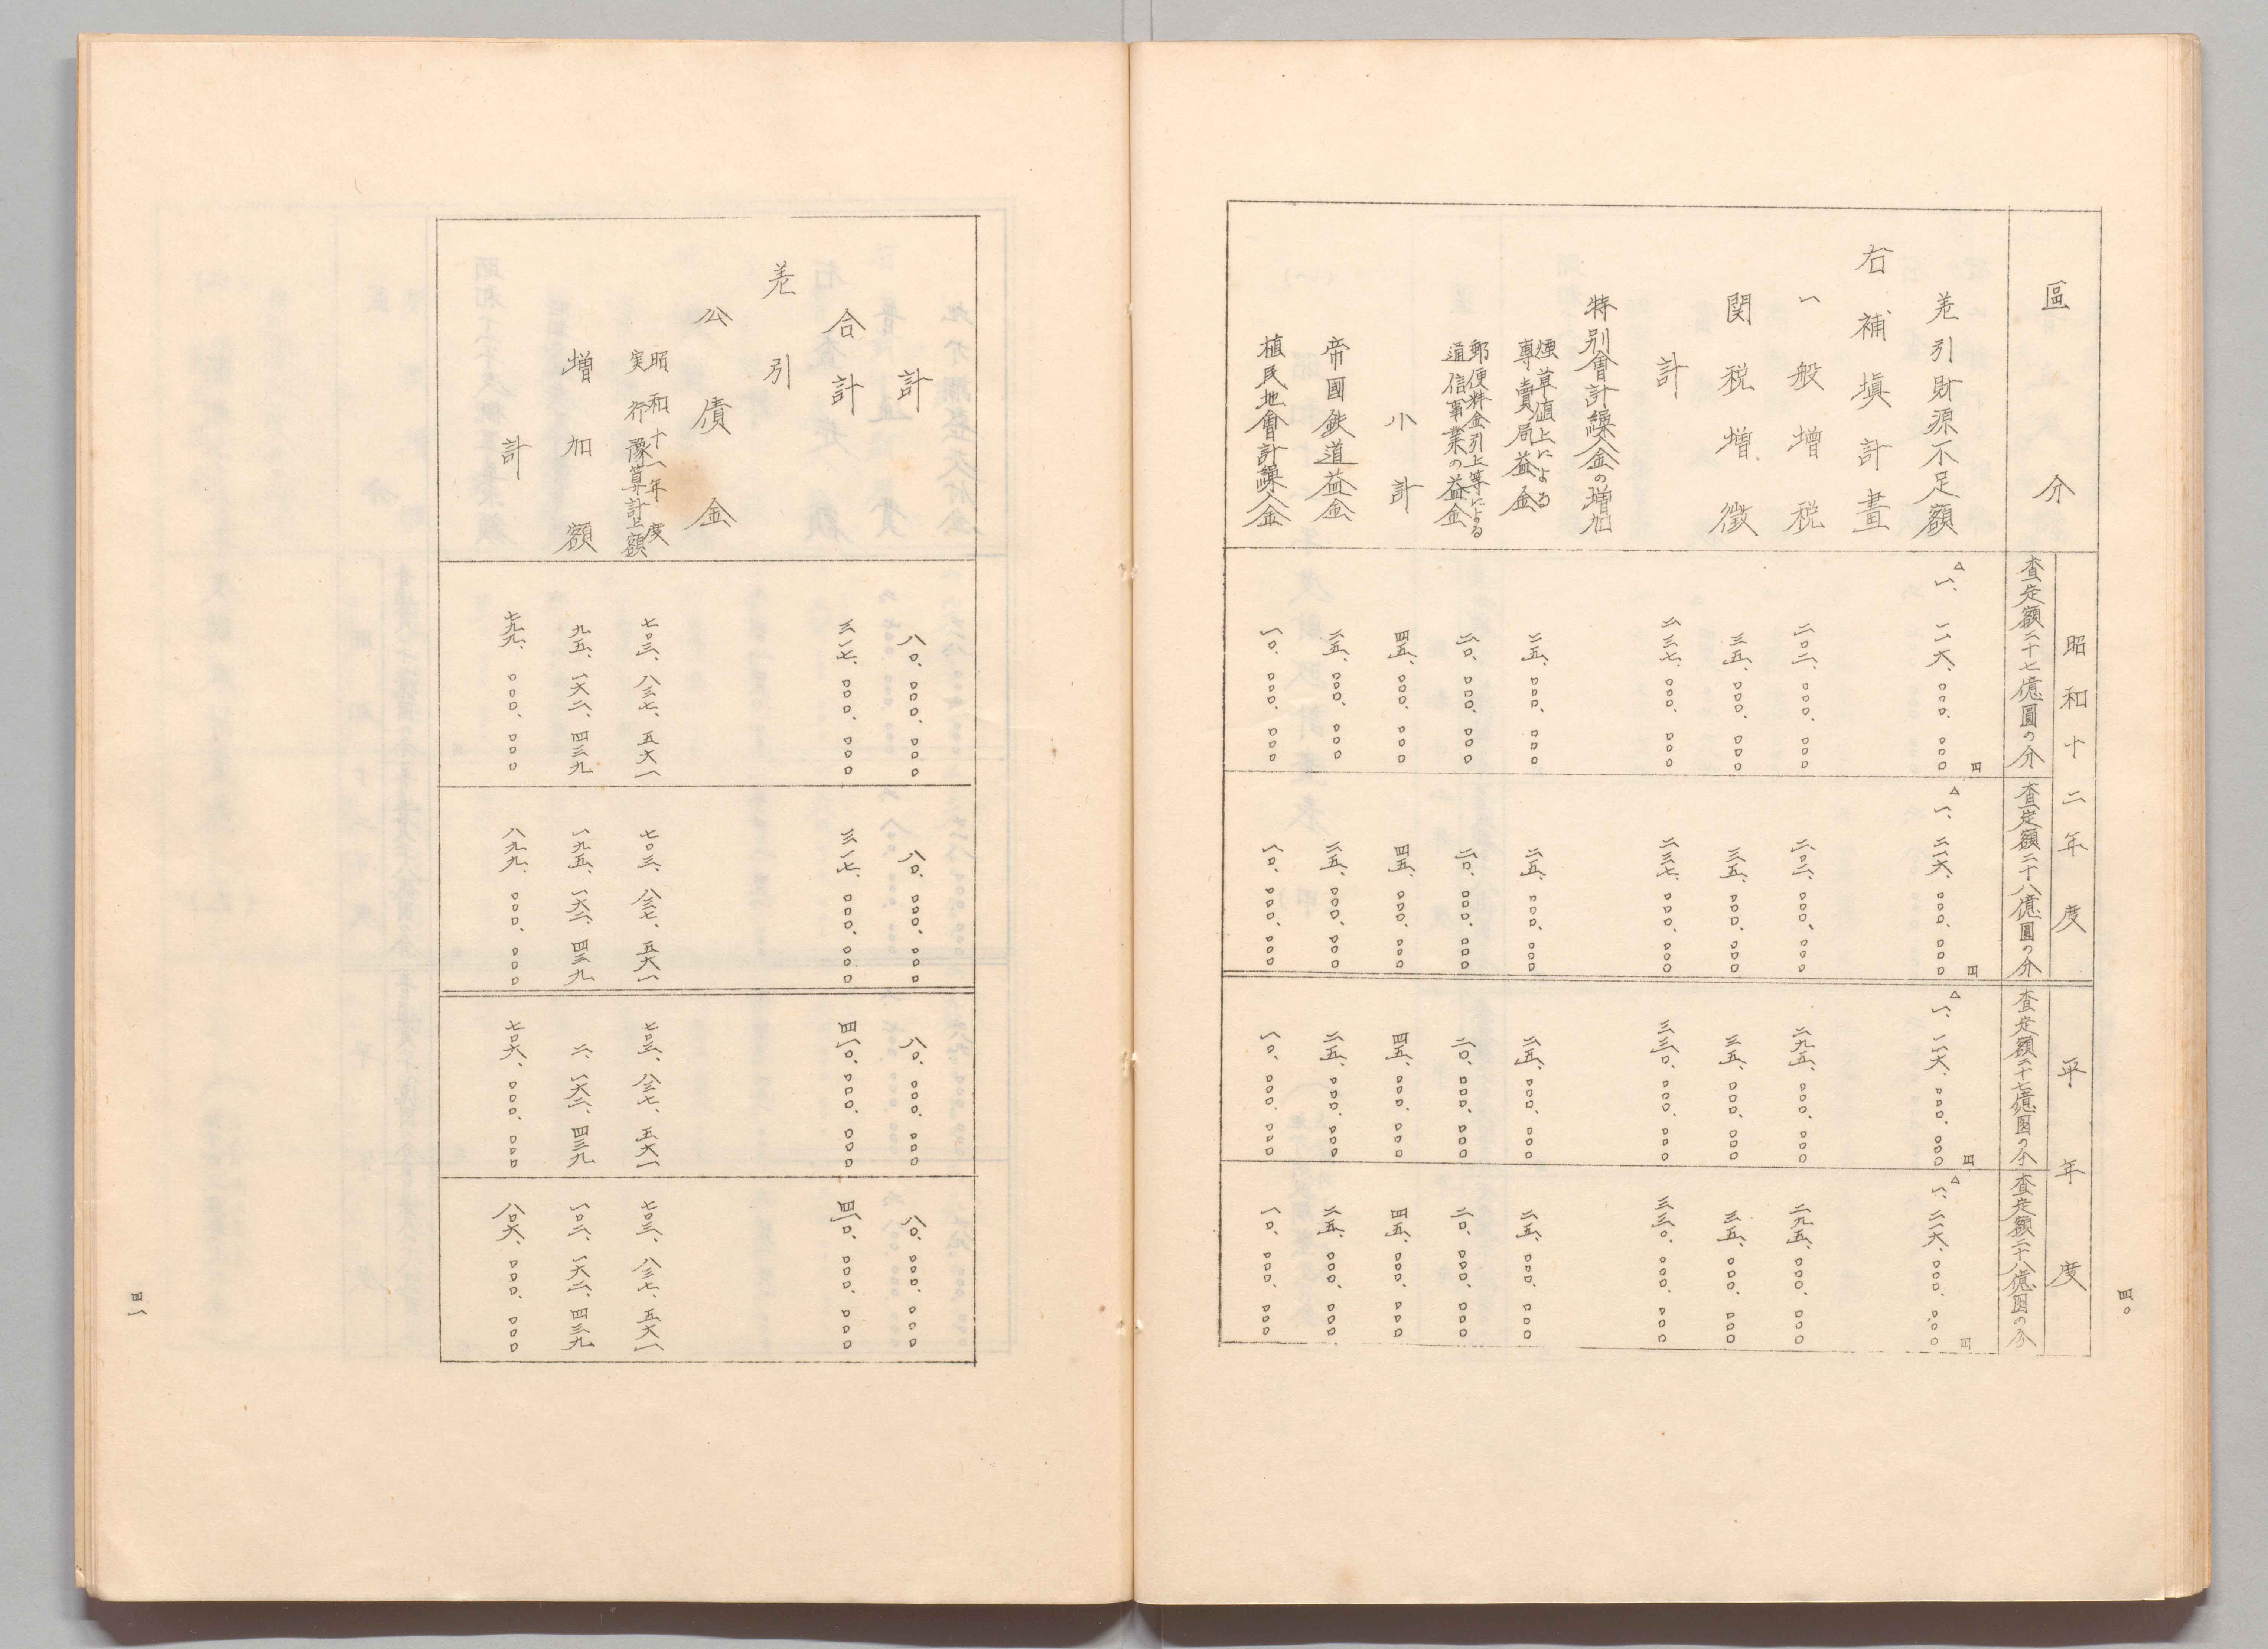 四〇
區分 昭和十二年度 平年度
査定額二十七億圓の分 査定額二十八億圓の分 査定額二十七億圓の分 査定額二十八億圓の分
円 円 円 円
差引財源不足額 △一、一一六、〇〇〇、〇〇〇 △一、二一六、〇〇〇、〇〇〇 △一、一一六、〇〇〇、〇〇〇 △一、二一六、〇〇〇、〇〇〇
右補塡計畫
一般増税 二〇二、〇〇〇、〇〇〇 二〇二、〇〇〇、〇〇〇 二九五、〇〇〇、〇〇〇 二九五、〇〇〇、〇〇〇
関税増徴 三五、〇〇〇、〇〇〇 三五、〇〇〇、〇〇〇 三五、〇〇〇、〇〇〇 三五、〇〇〇、〇〇〇
計 二三七、〇〇〇、〇〇〇 二三七、〇〇〇、〇〇〇 三三〇、〇〇〇、〇〇〇 三三〇、〇〇〇、〇〇〇
特別會計繰入金の増加
煙草値上による
専賣局益金 二五、〇〇〇、〇〇〇 二五、〇〇〇、〇〇〇 二五、〇〇〇、〇〇〇 二五、〇〇〇、〇〇〇
郵便料金引上等による
逓信事業の益金 二〇、〇〇〇、〇〇〇 二〇、〇〇〇、〇〇〇 二〇、〇〇〇、〇〇〇 二〇、〇〇〇、〇〇〇
小計 四五、〇〇〇、〇〇〇 四五、〇〇〇、〇〇〇 四五、〇〇〇、〇〇〇 四五、〇〇〇、〇〇〇
帝國鉄道益金 二五、〇〇〇、〇〇〇 二五、〇〇〇、〇〇〇 二五、〇〇〇、〇〇〇 二五、〇〇〇、〇〇〇
植民地會計繰入金 一〇、〇〇〇、〇〇〇 一〇、〇〇〇、〇〇〇 一〇、〇〇〇、〇〇〇 一〇、〇〇〇、〇〇〇
計 八〇、〇〇〇、〇〇〇 八〇、〇〇〇、〇〇〇 八〇、〇〇〇、〇〇〇 八〇、〇〇〇、〇〇〇
合計 三一七、〇〇〇、〇〇〇 三一七、〇〇〇、〇〇〇 四一〇、〇〇〇、〇〇〇 四一〇、〇〇〇、〇〇〇
差引
公債金
昭和十一年度
実行豫算計上額 七〇三、八三七、五六一 七〇三、八三七、五六一 七〇三、八三七、五六一 七〇三、八三七、五六一
増加額 九五、一六二、四三九 一九五、一六二、四三九 二、一六二、四三九 一〇二、一六二、四三九
計 七九九、〇〇〇、〇〇〇 八九九、〇〇〇、〇〇〇 七〇六、〇〇〇、〇〇〇 八〇六、〇〇〇、〇〇〇
四一